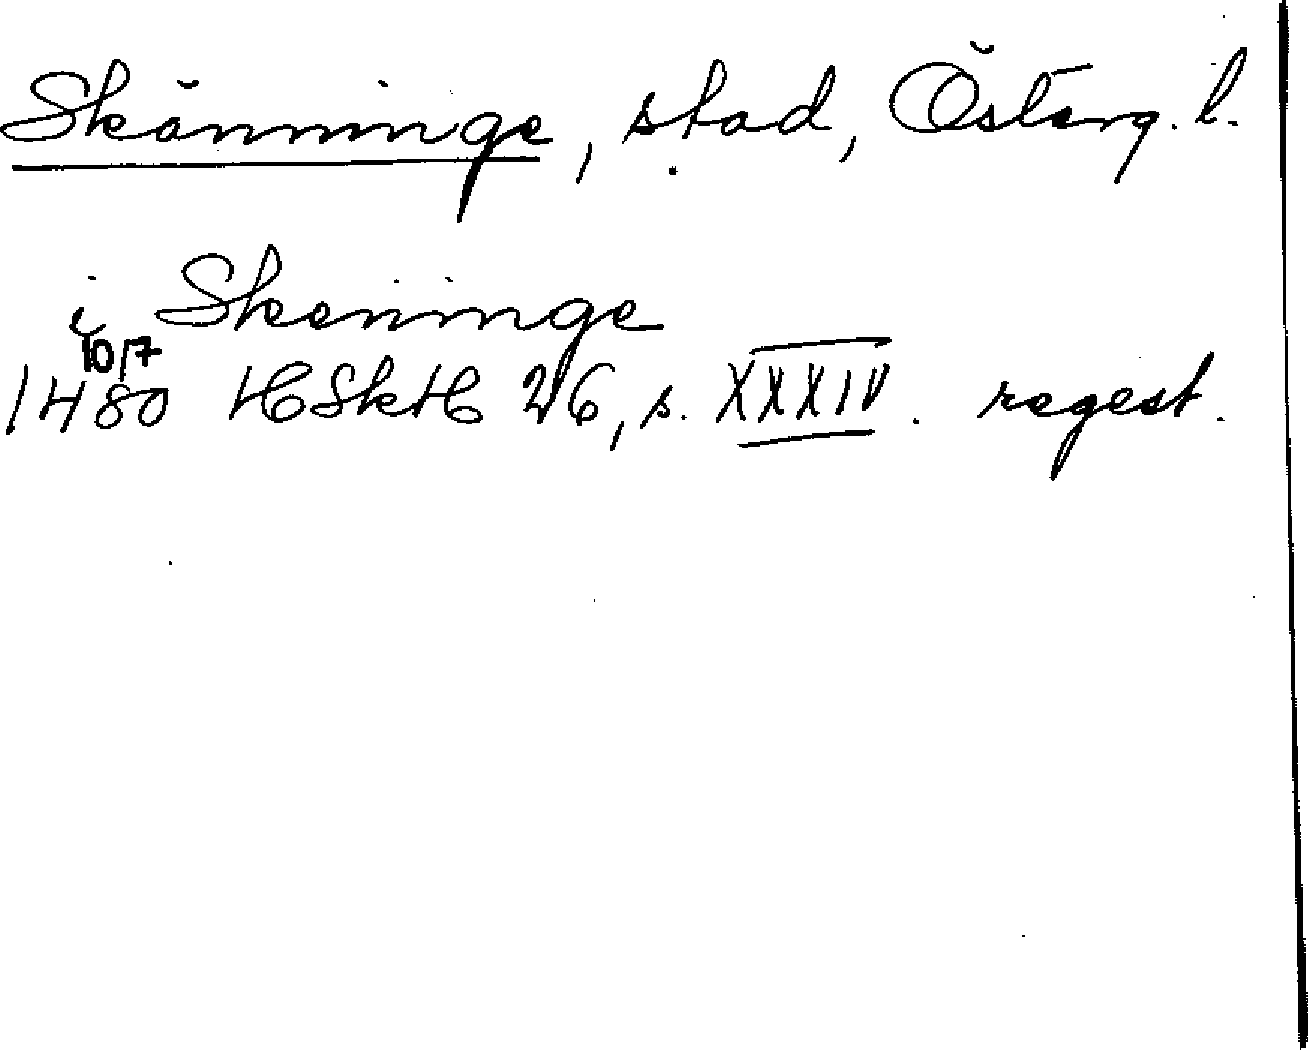 Skänninge, stad, Österg. l.
i Skeninge
10/7
1480 HSkH 26, s. XXXIV. regest.